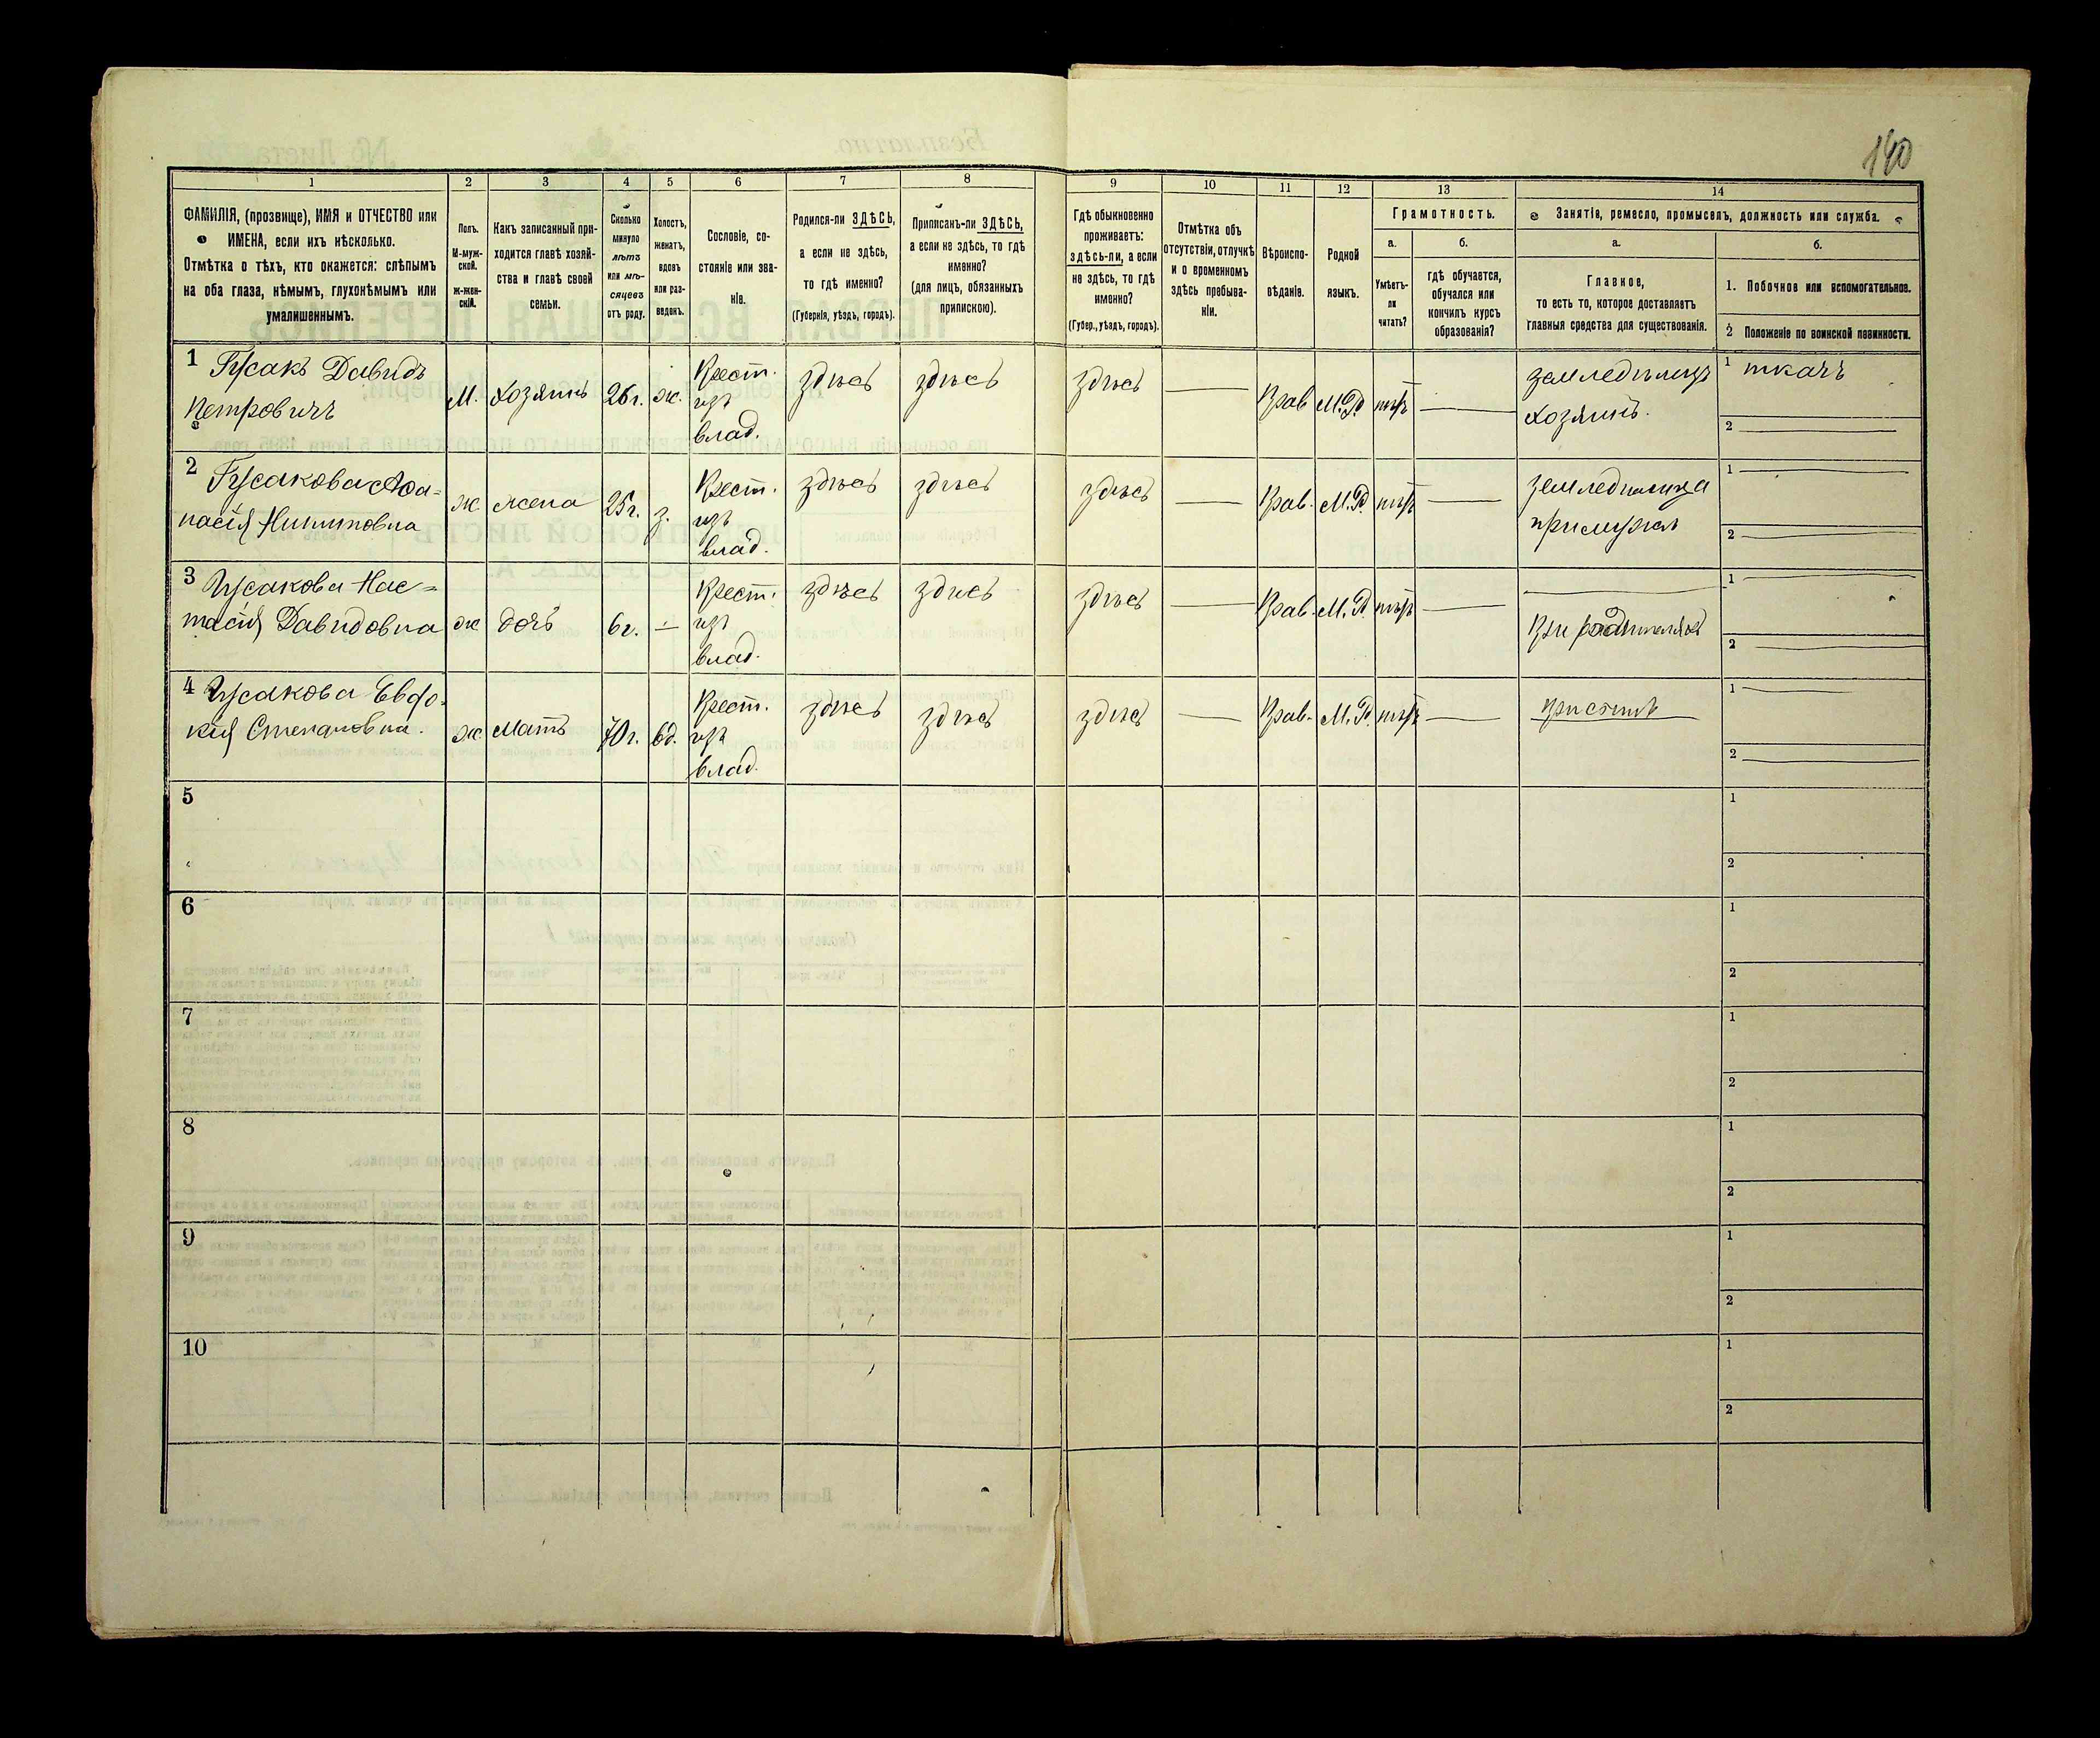 140
1
2
3
4
5
6
7
8
9
10
11
12
13
14
ФАМИЛІЯ, (прозвище), ИМЯ и ОТЧЕСТВО или
ИМЕНА, если ихъ нѣсколько.
Отмѣтка о тѣхъ, кто окажется: слѣпымъ
на оба глаза, нѣмымъ, глухонѣмымъ или
умалишеннымъ.
Полъ.
М-муж-
ской.
ж-жен-
скій.
Какъ записанный при-
ходится главѣ хозяй-
ства и главѣ своей
семьи.
Сколько
минуло
лѣтъ
или мѣ-
сяцевъ
отъ роду.
Холостъ,
женатъ,
вдовъ
или раз-
веденъ.
Сословіе, со-
стояніе или зва-
ніе.
Родился-ли ЗДѢСЬ,
а если не здѣсь,
то гдѣ именно?
(Губернія, уѣздъ, городъ).
Приписанъ-ли ЗДѢСЬ,
а если не здѣсь, то гдѣ
именно?
(для лицъ, обязанныхъ
припискою).
Гдѣ обыкновенно
проживаетъ:
здѣсь-ли, а если
не здѣсь, то гдѣ
именно?
(Губер., уѣздъ, городъ).
Отмѣтка объ
отсутствіи, отлучкѣ
и о временномъ
здѣсь пребыва-
ніи.
Вѣроиспо-
вѣданіе.
Родной
языкъ.
Грамотность.
а.
Умѣетъ-
ли
читать?
б.
гдѣ обучается,
обучался или
кончилъ курсъ
образованія?
Занятія, ремесло, промыселъ, должность или служба.
а.
Главное,
то есть то, которое доставляетъ
главныя средства для существованія.
б.
1. Побочное или вспомогательное.
2 Положеніе по воинской повинности.
1 Гусакъ Давидъ
Петровичъ
М.
хозяинъ
26 г.
ж.
Крест.
изъ
влад.
здѣсь
здѣсь
здѣсь
Прав.
М.Р.
нѣтъ
земледѣлецъ
хозяинъ.
1 ткачъ
2
2 Гусакова Афа-
насія
ж
жена
25 г.
з.
Крест.
изъ
влад.
здѣсь
здѣсь
здѣсь
Прав.
М.Р.
нѣтъ
при мужѣ
1
2
3 Гусакова Нас-
тасія Давидовна
ж
дочь
6 г.
Крест.
изъ
влад.
здѣсь
здѣсь
здѣсь
Прав.
М.Р.
нѣтъ
При родителяхъ
1
2
4 Гусакова Евдо-
кія Степановна.
ж.
мать
70 г.
вд.
Крест.
изъ
влад.
здѣсь
здѣсь
здѣсь
Прав.
М.Р.
нѣтъ
при сынѣ
1
2
5
1
2
6
1
2
7
1
2
8
1
2
9
1
2
10
1
2